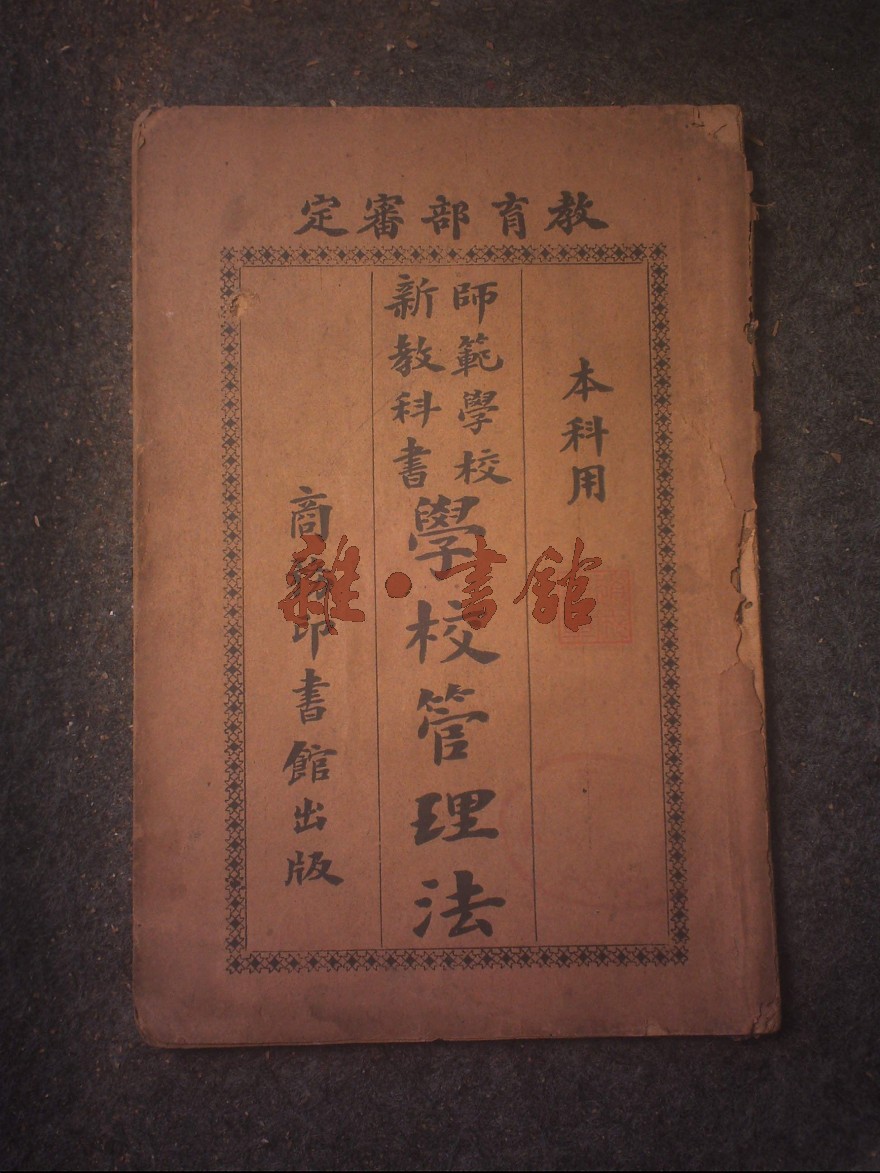 教育部審定
本科用
師範學校
新教科書
學校管理法
商務印書館出版
雜·書館